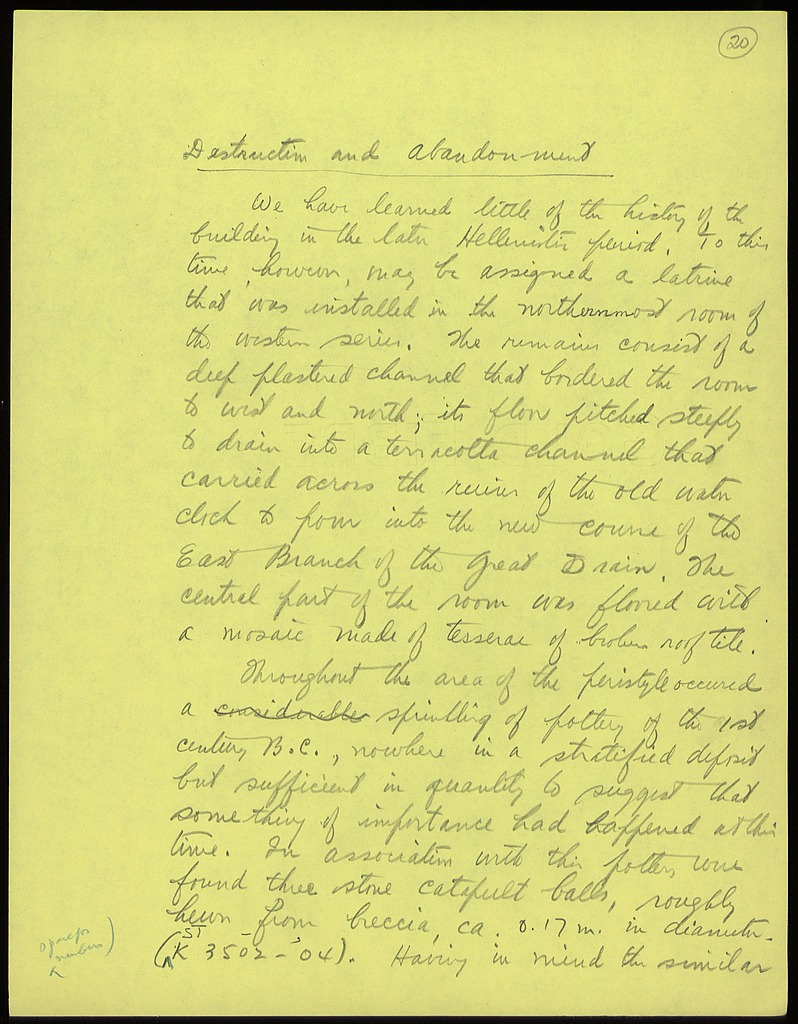 20
Destruction and abandonment
We have learned little of the history of the
building in the later Hellenistic period. To this
time, however, may be assigned a latrine
that was installed in the northernmost room of
the western series. The remains consist of a
deep plastered channel that bordered the room
to west and north; its floor pitched steeply
to drain into a terracotta channel that
carried across the ruins of the old water
clock to pour into the new course of the
East Branch of the Great Drain. The
central part of the room was floored with
a mosaic made of tesserae of broken roof tile.
Throughout the area of the peristyle occured
a considerable sprinkling of pottery of the 1st
century B.C., nowhere in a stratified deposit
but sufficient in quantity to suggest that
something of importance had happened at this
time. In association with this pottery were
found three stone catapult balls, roughly
hewn from breccia, ca. 0.17 m. in diameter.
(STK 3502-04). Having in mind the similar
numbers)